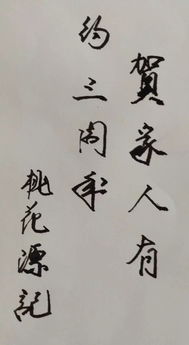 賀家人有
約三周年
桃花源記